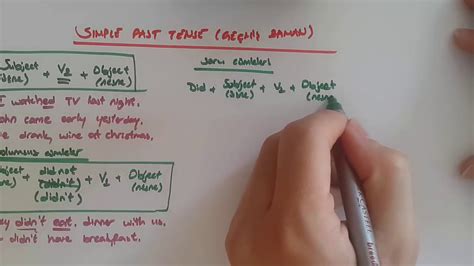 SIMPLE PAST TENSE (GEÇMİŞ ZAMAN)
Subject + V2 + Object
(özne) (nesne)
I watched TV last night.
John came early yesterday.
We drank wine at Christmas.
Olumsuz cümleler
Subject + did not + V1 + Object
(özne) (didn't) (nesne)
They didn't eat dinner with us.
didn't have breakfast.
Soru cümleleri
Did + Subject + V1 + Object
(özne) (nesne)